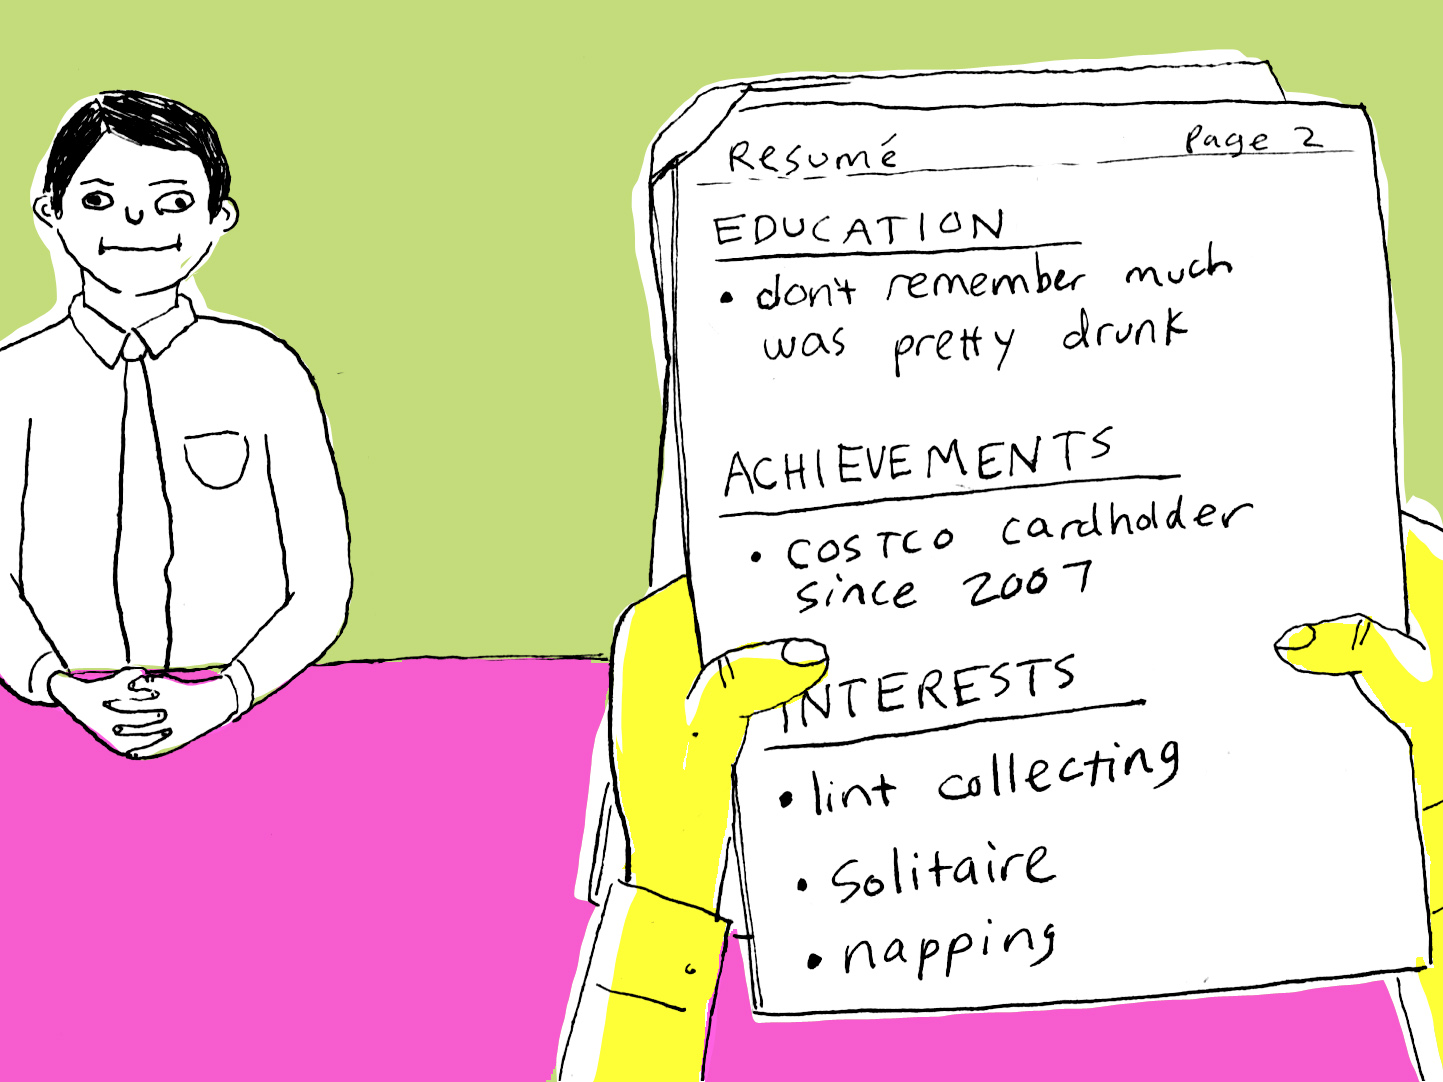 Resumé Page 2
EDUCATION
• don't remember much
was pretty drunk
ACHIEVEMENTS
• COSTCO cardholder
since 2007
INTERESTS
• lint collecting
• Solitaire
• napping